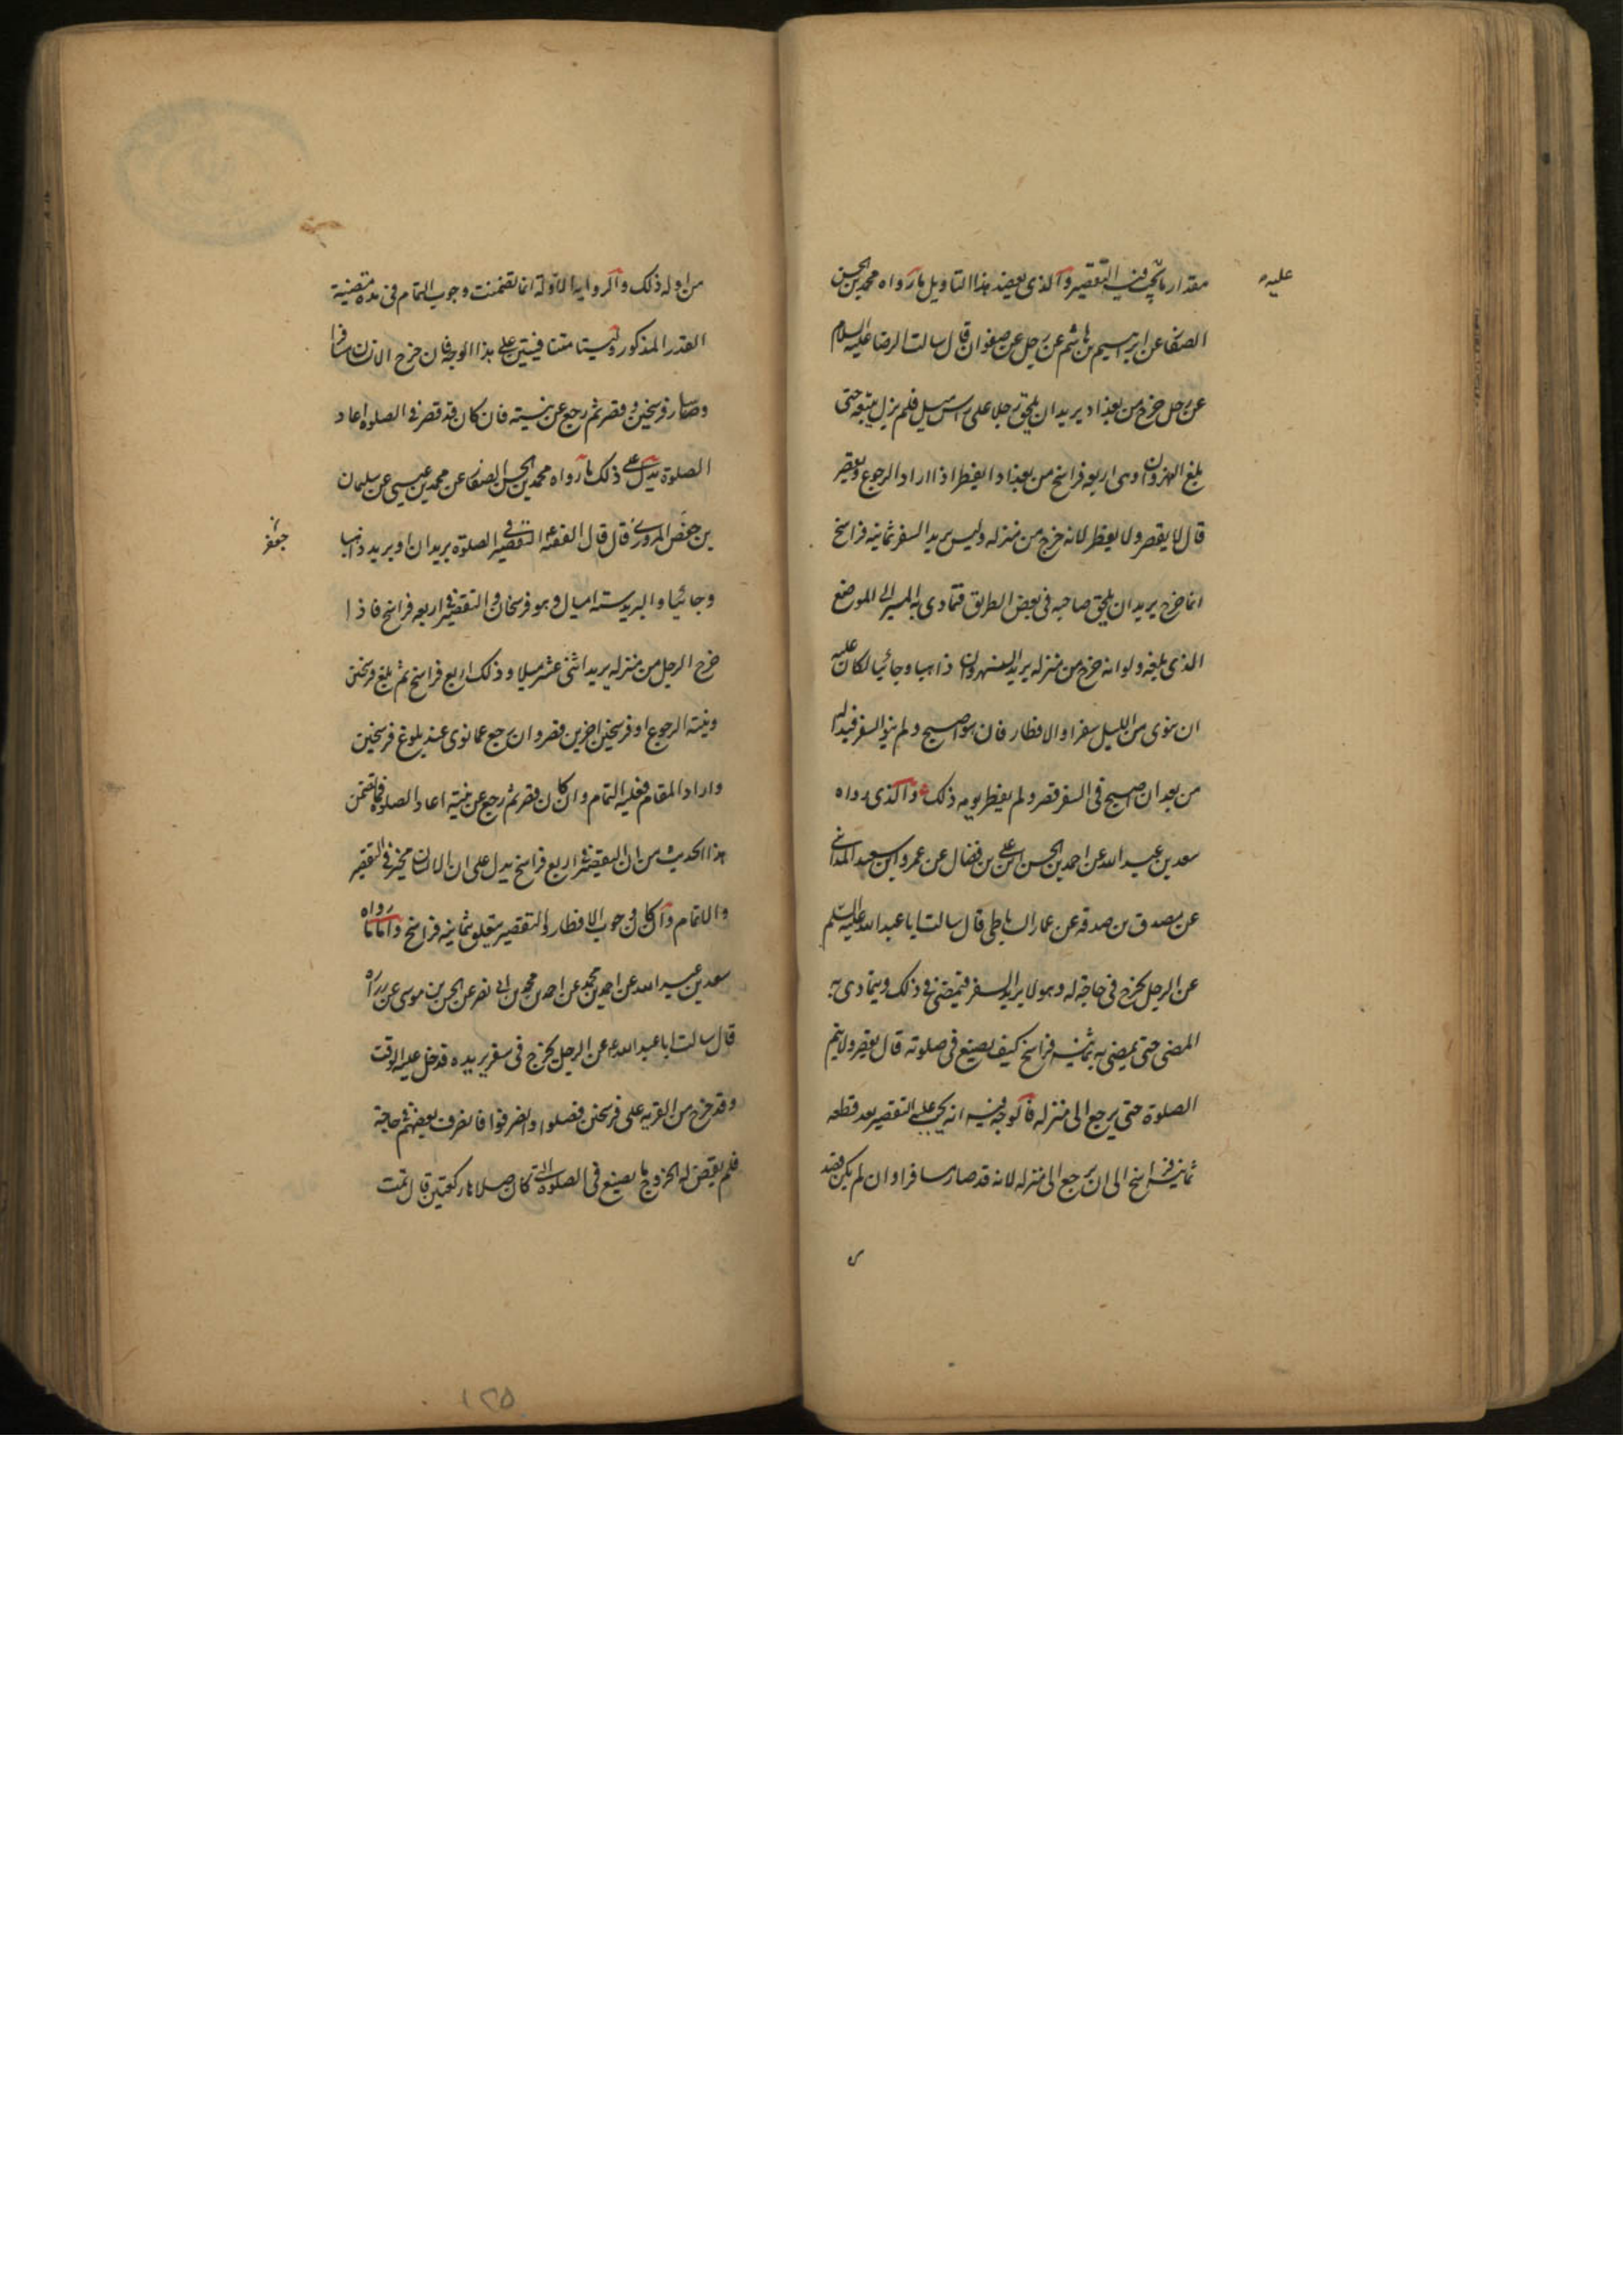 مقدار ما يجب فيه التقصير والذى يعضد هذا التاويل ما رواه محمد بن الحسن
عليه
الصفار عن ابرهيم بن هاشم عن رجل عن صفوان قال سالت الرضا عليه السلام
عن رجل خرج من بغداد يريد ان يلحق رجلا على راس ميل فلم يزل يتبعه حتى
بلغ النهروان وهى اربعه فراسخ من بغداد ايفطر اذا اراد الرجوع ويقصر
قال لا يقصر ولا يفطر لانه خرج من منزله وليس يريد السفر ثمانيه فراسخ
انما خرج يريد ان يلحق صاحبه فى بعض الطريق فتمادى به المسير الى الموضع
الذى بلغه ولو انه خرج من منزله يريد النهروان ذاهبا وجائيا لكان عليه
ان ينوى من الليل سفرا والافطار فان هو اصبح ولم ينو السفر فبدا له
من بعد ان اصبح فى السفر قصر ولم يفطر يومه ذلك والذى رواه
سعد بن عبد الله عن احمد بن الحسن بن على بن فضال عن عمرو ابن سعيد المدائنى
عن مصدق بن صدقه عن عمار الساباطى قال سالت ابا عبد الله عليه السلم
عن الرجل يخرج فى حاجة له وهو لا يريد السفر فيمضى فى ذلك ويتمادى به
المضى حتى يمضى به ثمانيه فراسخ كيف يصنع فى صلوته قال يقصر ولا يتم
الصلوة حتى يرجع الى منزله فالوجه فيه انه يجب عليه التقصير بعد قطعه
ثمانيه فراسخ الى ان يرجع الى منزله لانه قد صار مسافرا وان لم يكن قصد
من اوله ذلك والروايه الاوله انما تضمنت وجوب التمام فى مده مقضيه
القدر المذكور وليستا متنافيتين على هذا الوجه فان خرج الانسان مسافرا
وصار فرسخين وقصر ثم رجع عن نيته فان كان قد قصر فى الصلوة اعاد
الصلوة يدل على ذلك ما رواه محمد بن الحسن الصفار عن محمد بن عيسى عن سليمان
بن حفص المروزى قال قال الفقيه التقصير فى الصلوة بريدان او بريد ذاهبا
جعفر
وجائيا والبريد سته اميال وهو فرسخان والتقصير فى اربعه فراسخ فاذا
خرج الرجل من منزله يريد اثنى عشر ميلا وذلك اربع فراسخ ثم بلغ فرسخين
ونيته الرجوع او فرسخين اخرين قصر وان رجع عما نوى عند بلوغ فرسخين
واراد المقام فعليه التمام وان كان قصر ثم رجع عن نيته اعاد الصلوة فما تضمن
هذا الحديث من ان التقصير اربع فراسخ يدل على ان الانسان مخير فى التقصير
والاتمام وان كان وجوب الافطار والتقصير متعلق بثمانيه فراسخ واما ما رواه
سعد بن عبد الله عن احمد بن محمد عن احمد بن محمد بن ابى نصر عن الحسن بن موسى عن زرارة
قال سالت ابا عبد الله ع عن الرجل يخرج فى سفر يريده قد دخل عليه الوقت
وقد خرج من القريه على فرسخين فصلوا وانصرفوا فانصرف بعضهم فى حاجة
فلم يقض له الخروج ما يصنع فى الصلوة التى كان صلاها ركعتين قال تمت
١٢٥